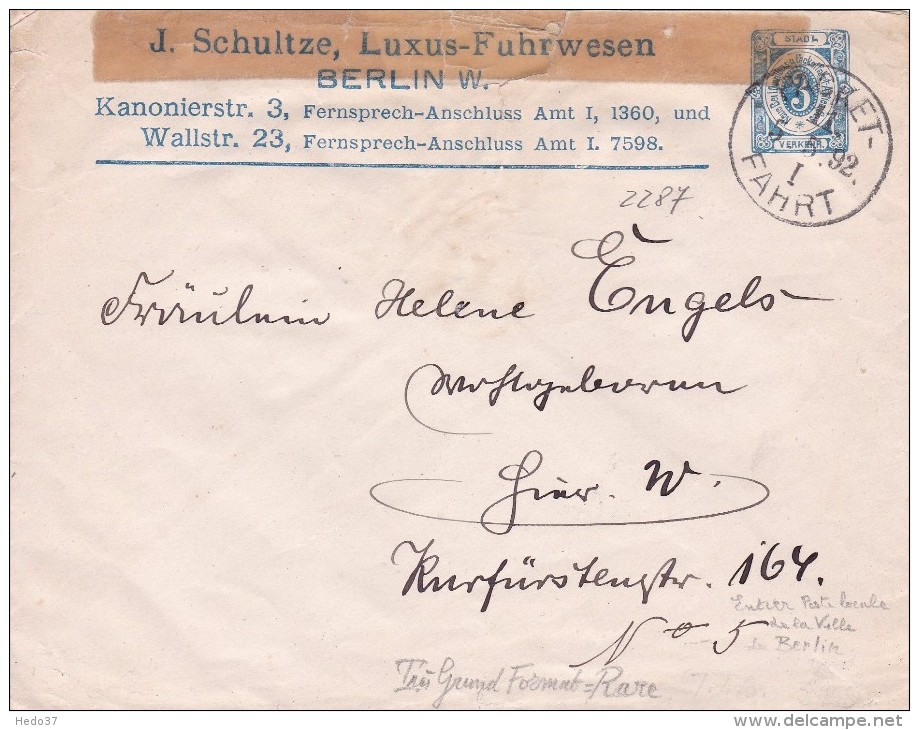 J. Schultze, Luxus-Fuhrwesen
BERLIN W.
Kanonierstr. 3, Fernsprech-Anschluss Amt I, 1360, und
Wallstr. 23, Fernsprech-Anschluss Amt I. 7598.
STADT-
3
VERKEHR.
PACKET-
92.
I
FAHRT
2287
Fräulein Helene Engels
Wohlgeboren
Hier. W.
Kurfürstenstr. 164.
No 5
Entier Poste locale
de la Ville
de Berlin
Très Grand Format = Rare
Hedo37
delcampe.net